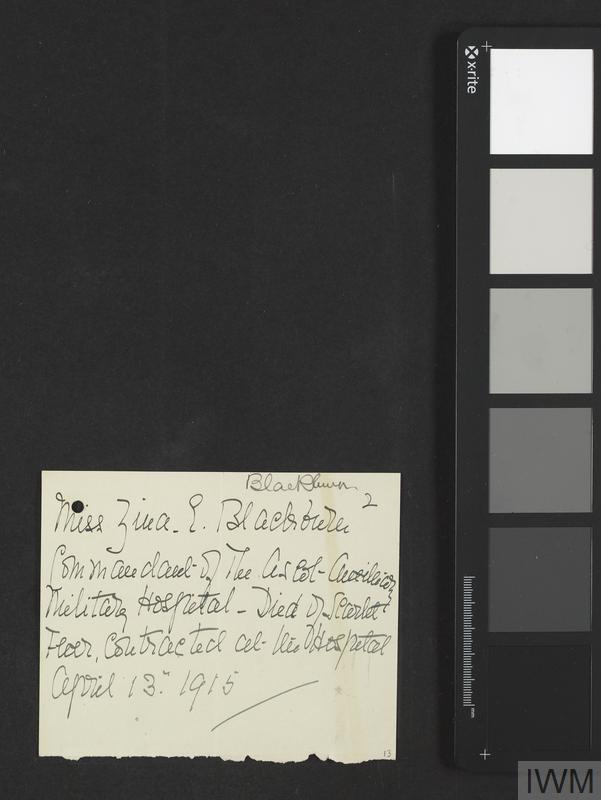 Blackburn
2
Miss Zina. E. Blackburn
Commandant of The Ascot Auxiliary
Military Hospital - Died of Scarlet
Fever, contracted at the Hospital
April 13. 1915
13
x·rite
mm
IWM